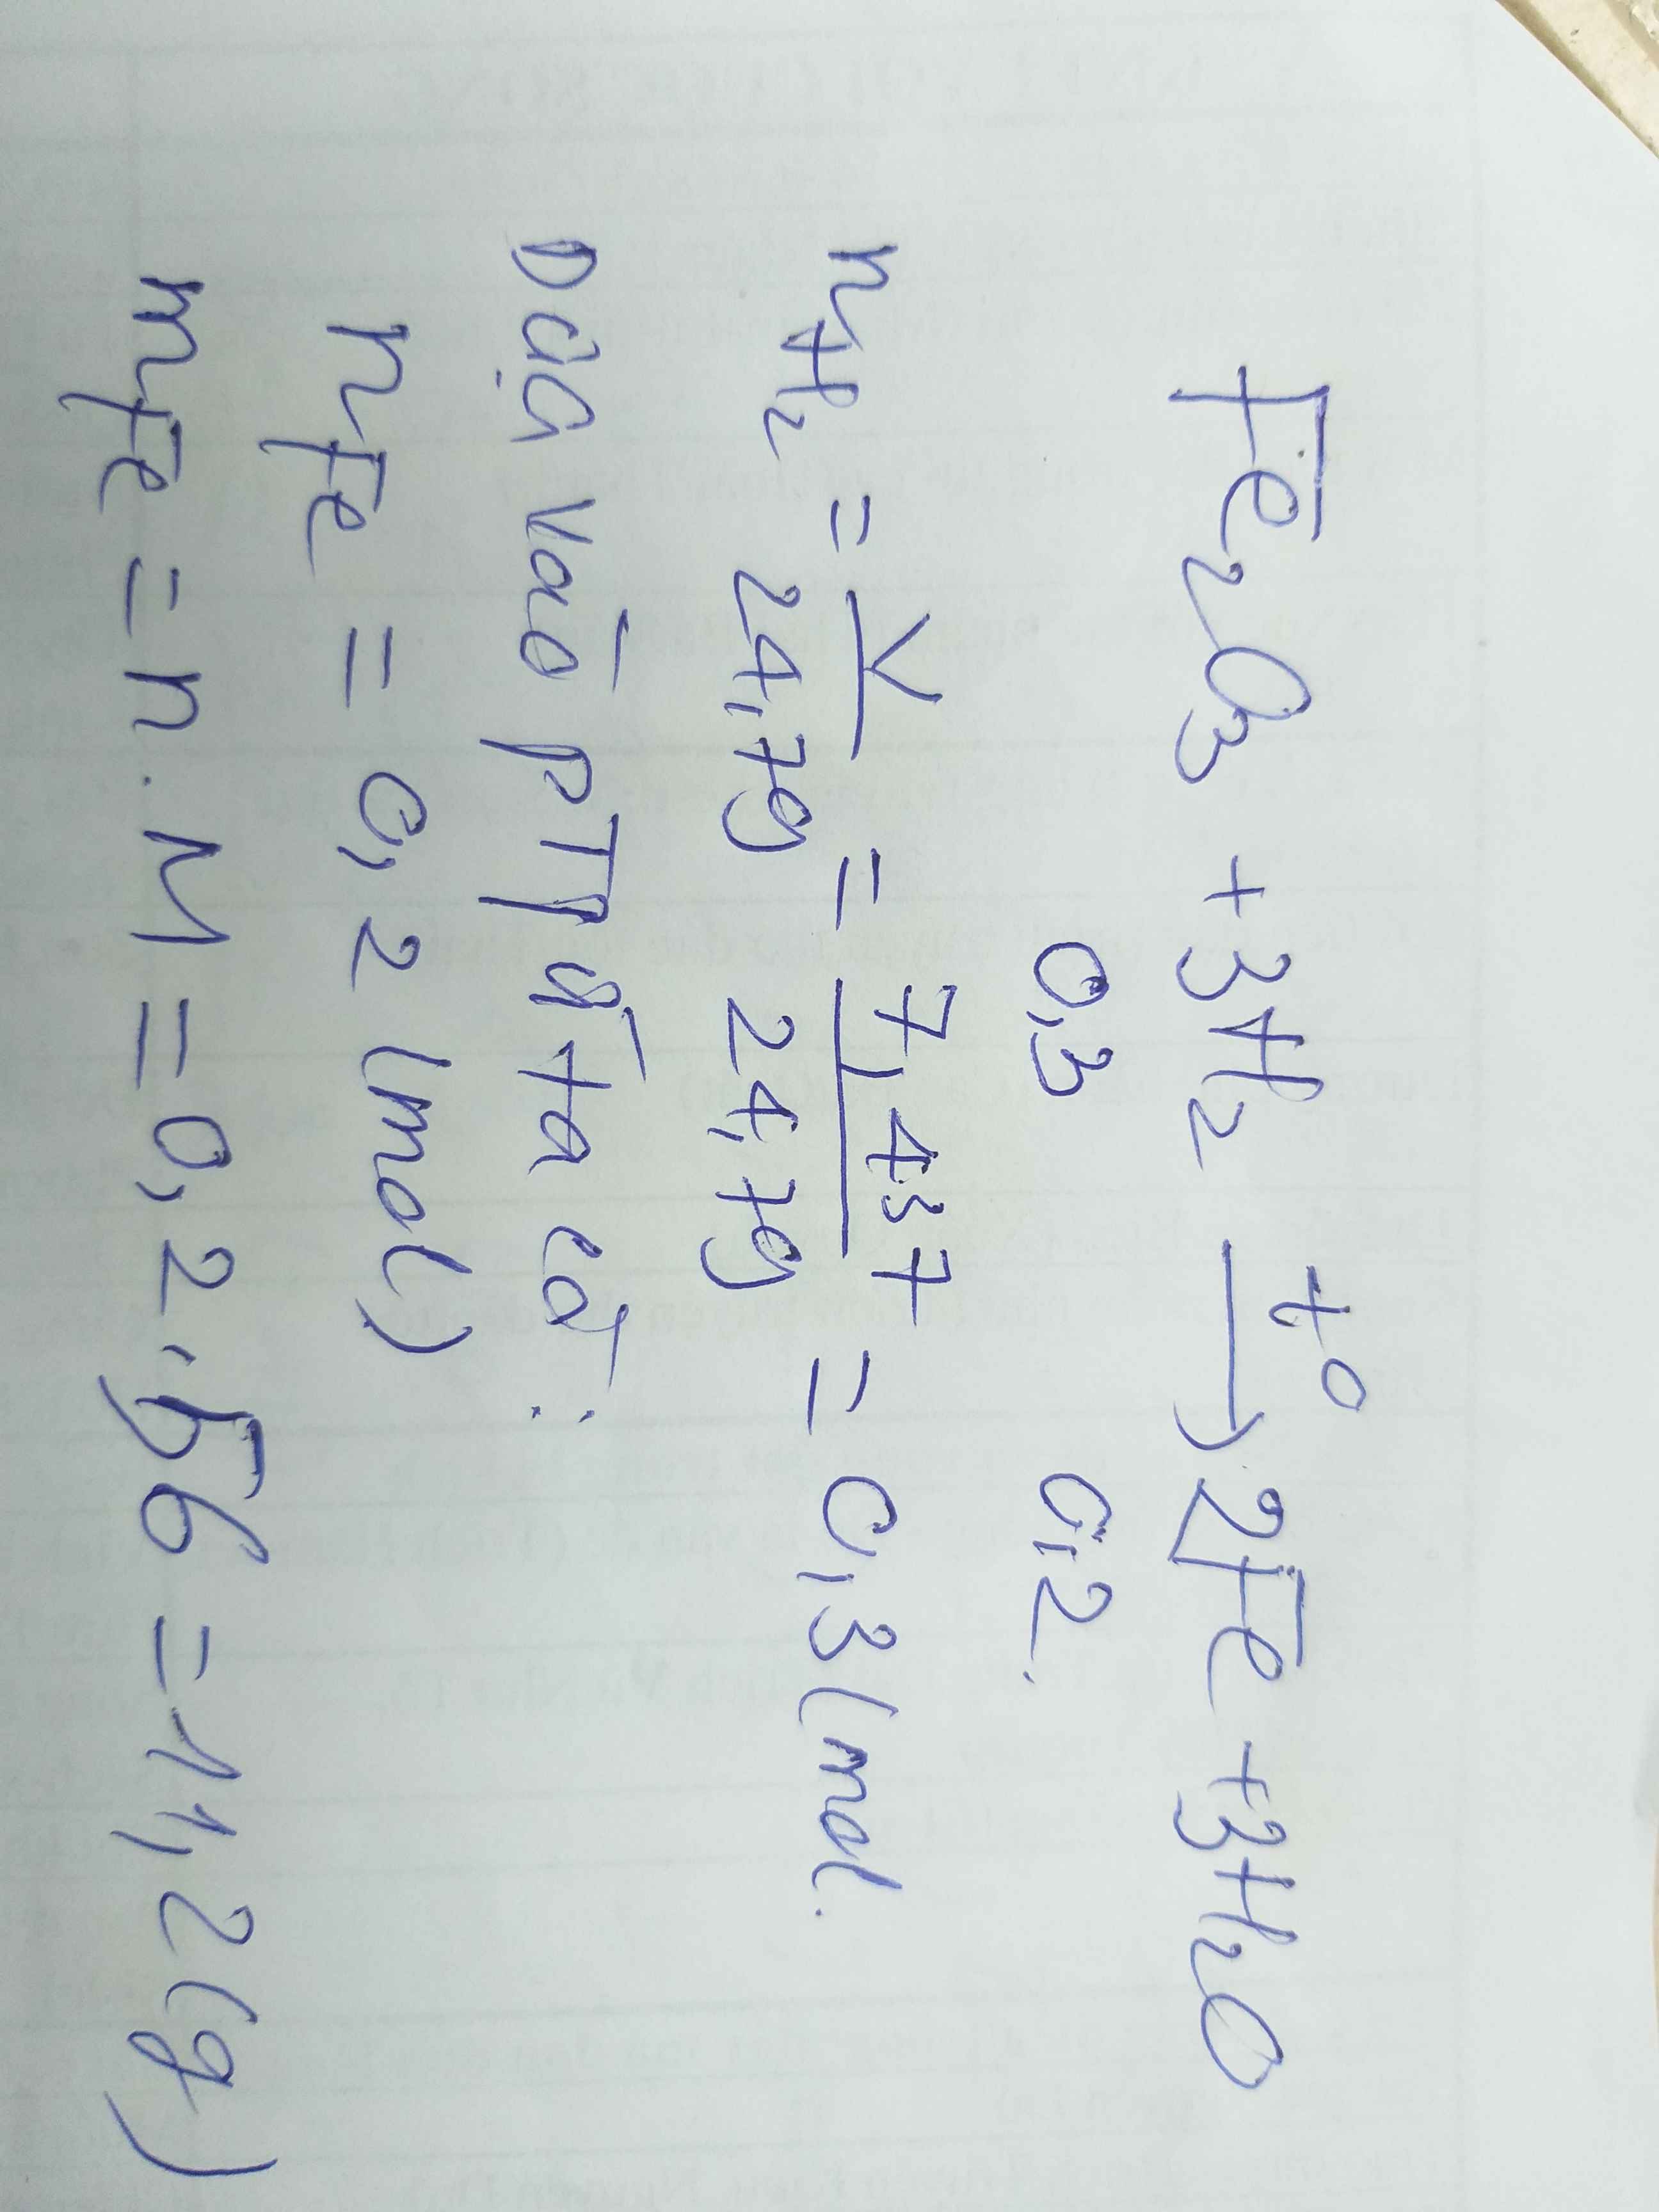 Fe₂O₃ + 3H₂ --t°--> 2Fe + 3H₂O
0,3 0,2.
n_H₂ = V/24,79 = 7,437/24,79 = 0,3 (mol.
Dựa vào PTPƯ ta có:
n_Fe = 0,2 (mol)
m_Fe = n.M = 0,2.56 = 11,2(g)